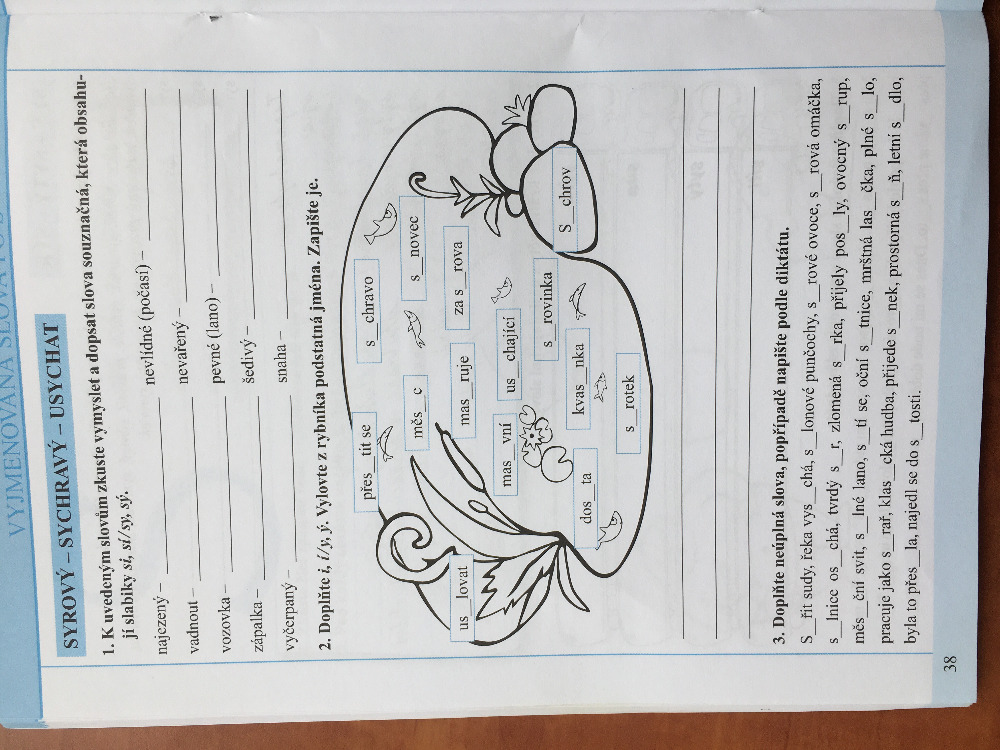 VYJMENOVANÁ SLOVA PO S
SYROVÝ – SYCHRAVÝ – USYCHAT
1. K uvedeným slovům zkuste vymyslet a dopsat slova souznačná, která obsahu-
jí slabiky si, sí/sy, sý.
najezený – ____________ nevlídné (počasí) – ____________
vadnout – ____________ nevařený – ____________
vozovka – ____________ pevné (lano) – ____________
zápalka – ____________ šedivý – ____________
vyčerpaný – ____________ snaha – ____________
2. Doplňte i, í/y, ý. Vylovte z rybníka podstatná jména. Zapište je.
us__lovat
přes__tit se
s__chravo
měs__c
s__novec
mas__ruje
za s__rova
mas__vní
us__chající
s__rovinka
S__chrov
dos__ta
kvas__nka
s__rotek
3. Doplňte neúplná slova, popřípadě napište podle diktátu.
S__řit sudy, řeka vys__chá, s__lonové punčochy, s__rové ovoce, s__rová omáčka,
s__lnice os__chá, tvrdý s__r, zlomená s__rka, přijely pos__ly, ovocný s__rup,
měs__ční svit, s__lné lano, s__tí se, oční s__tnice, mrštná las__čka, plné s__lo,
pracuje jako s__rař, klas__cká hudba, přijede s__nek, prostorná s__ň, letní s__dlo,
byla to přes__la, najedl se do s__tosti.
38